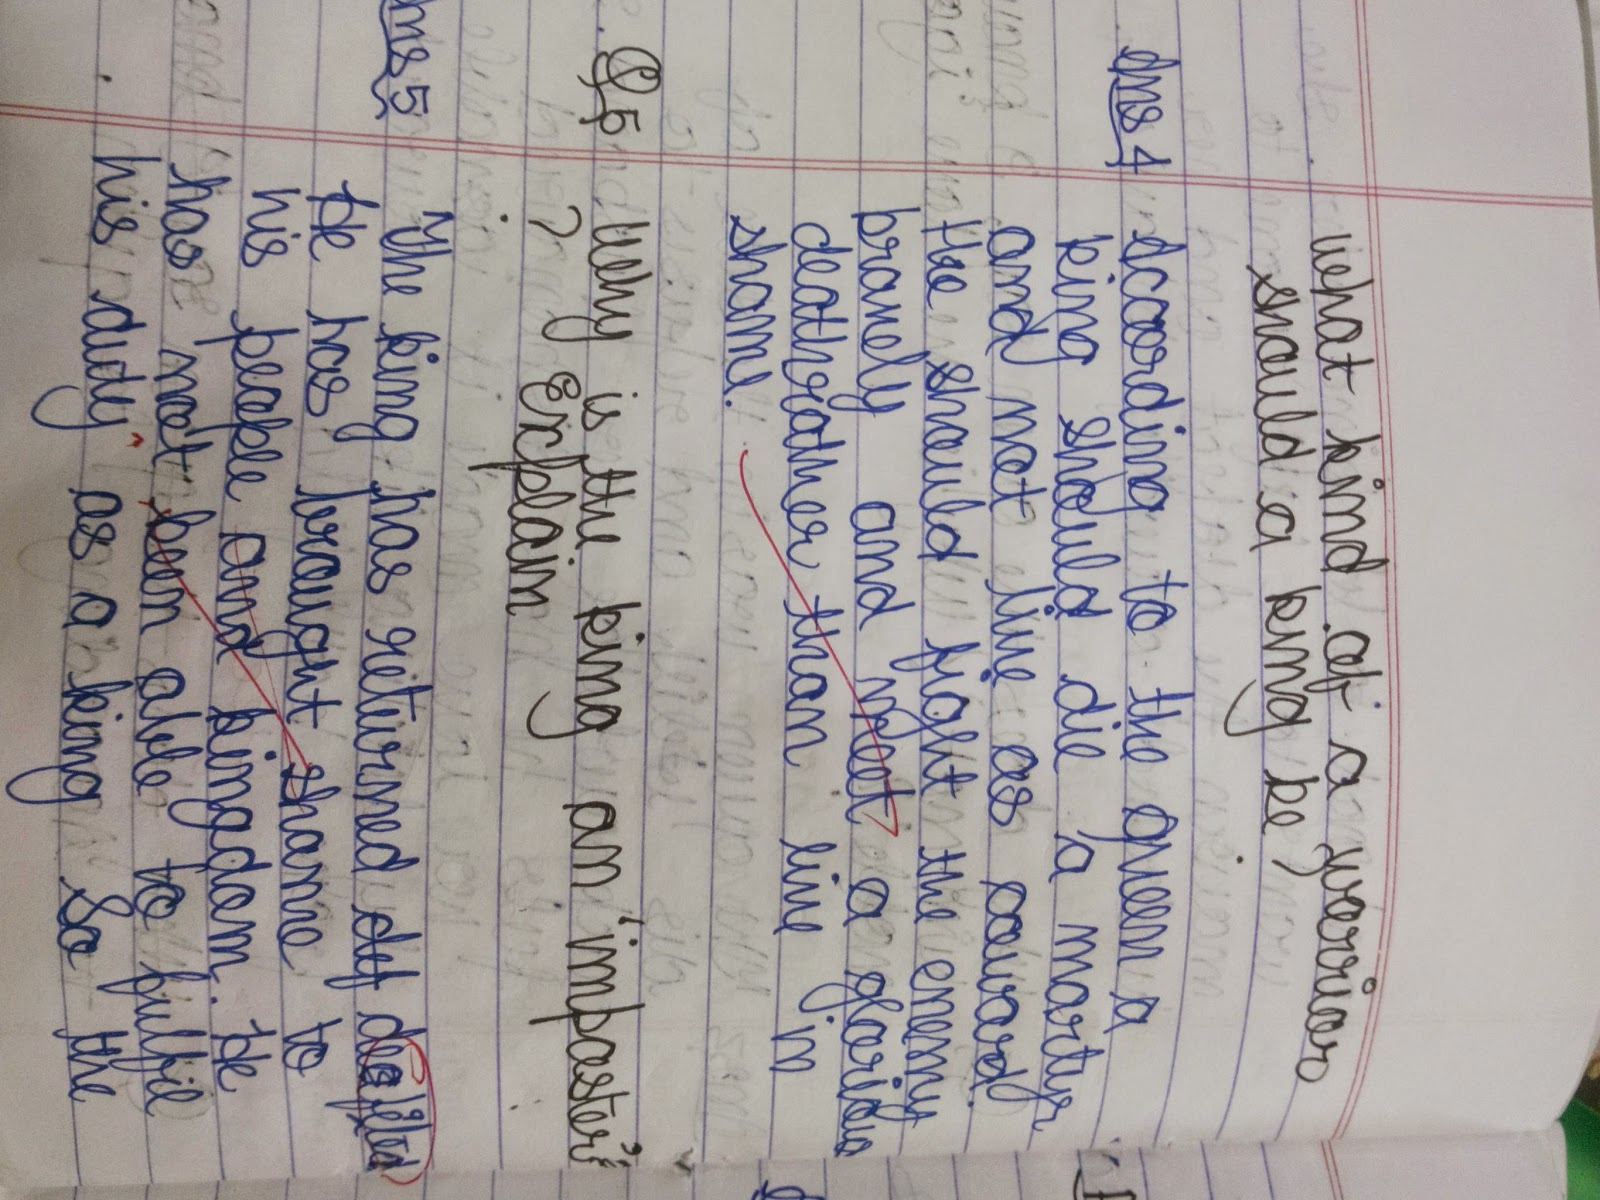 What kind of a warrior
should a king be?
Ans 4 According to the queen a
king should die a martyr
and not live as coward.
the should fight the enemy
bravely and meet a glorious
death rather than live in
shame.
Q5 Why is the king an 'imposter'
? Explain
Ans 5 The king has returned def
He has brought shame to
his people and kingdom. He
has not been able to fulfil
his duty as a king. So the